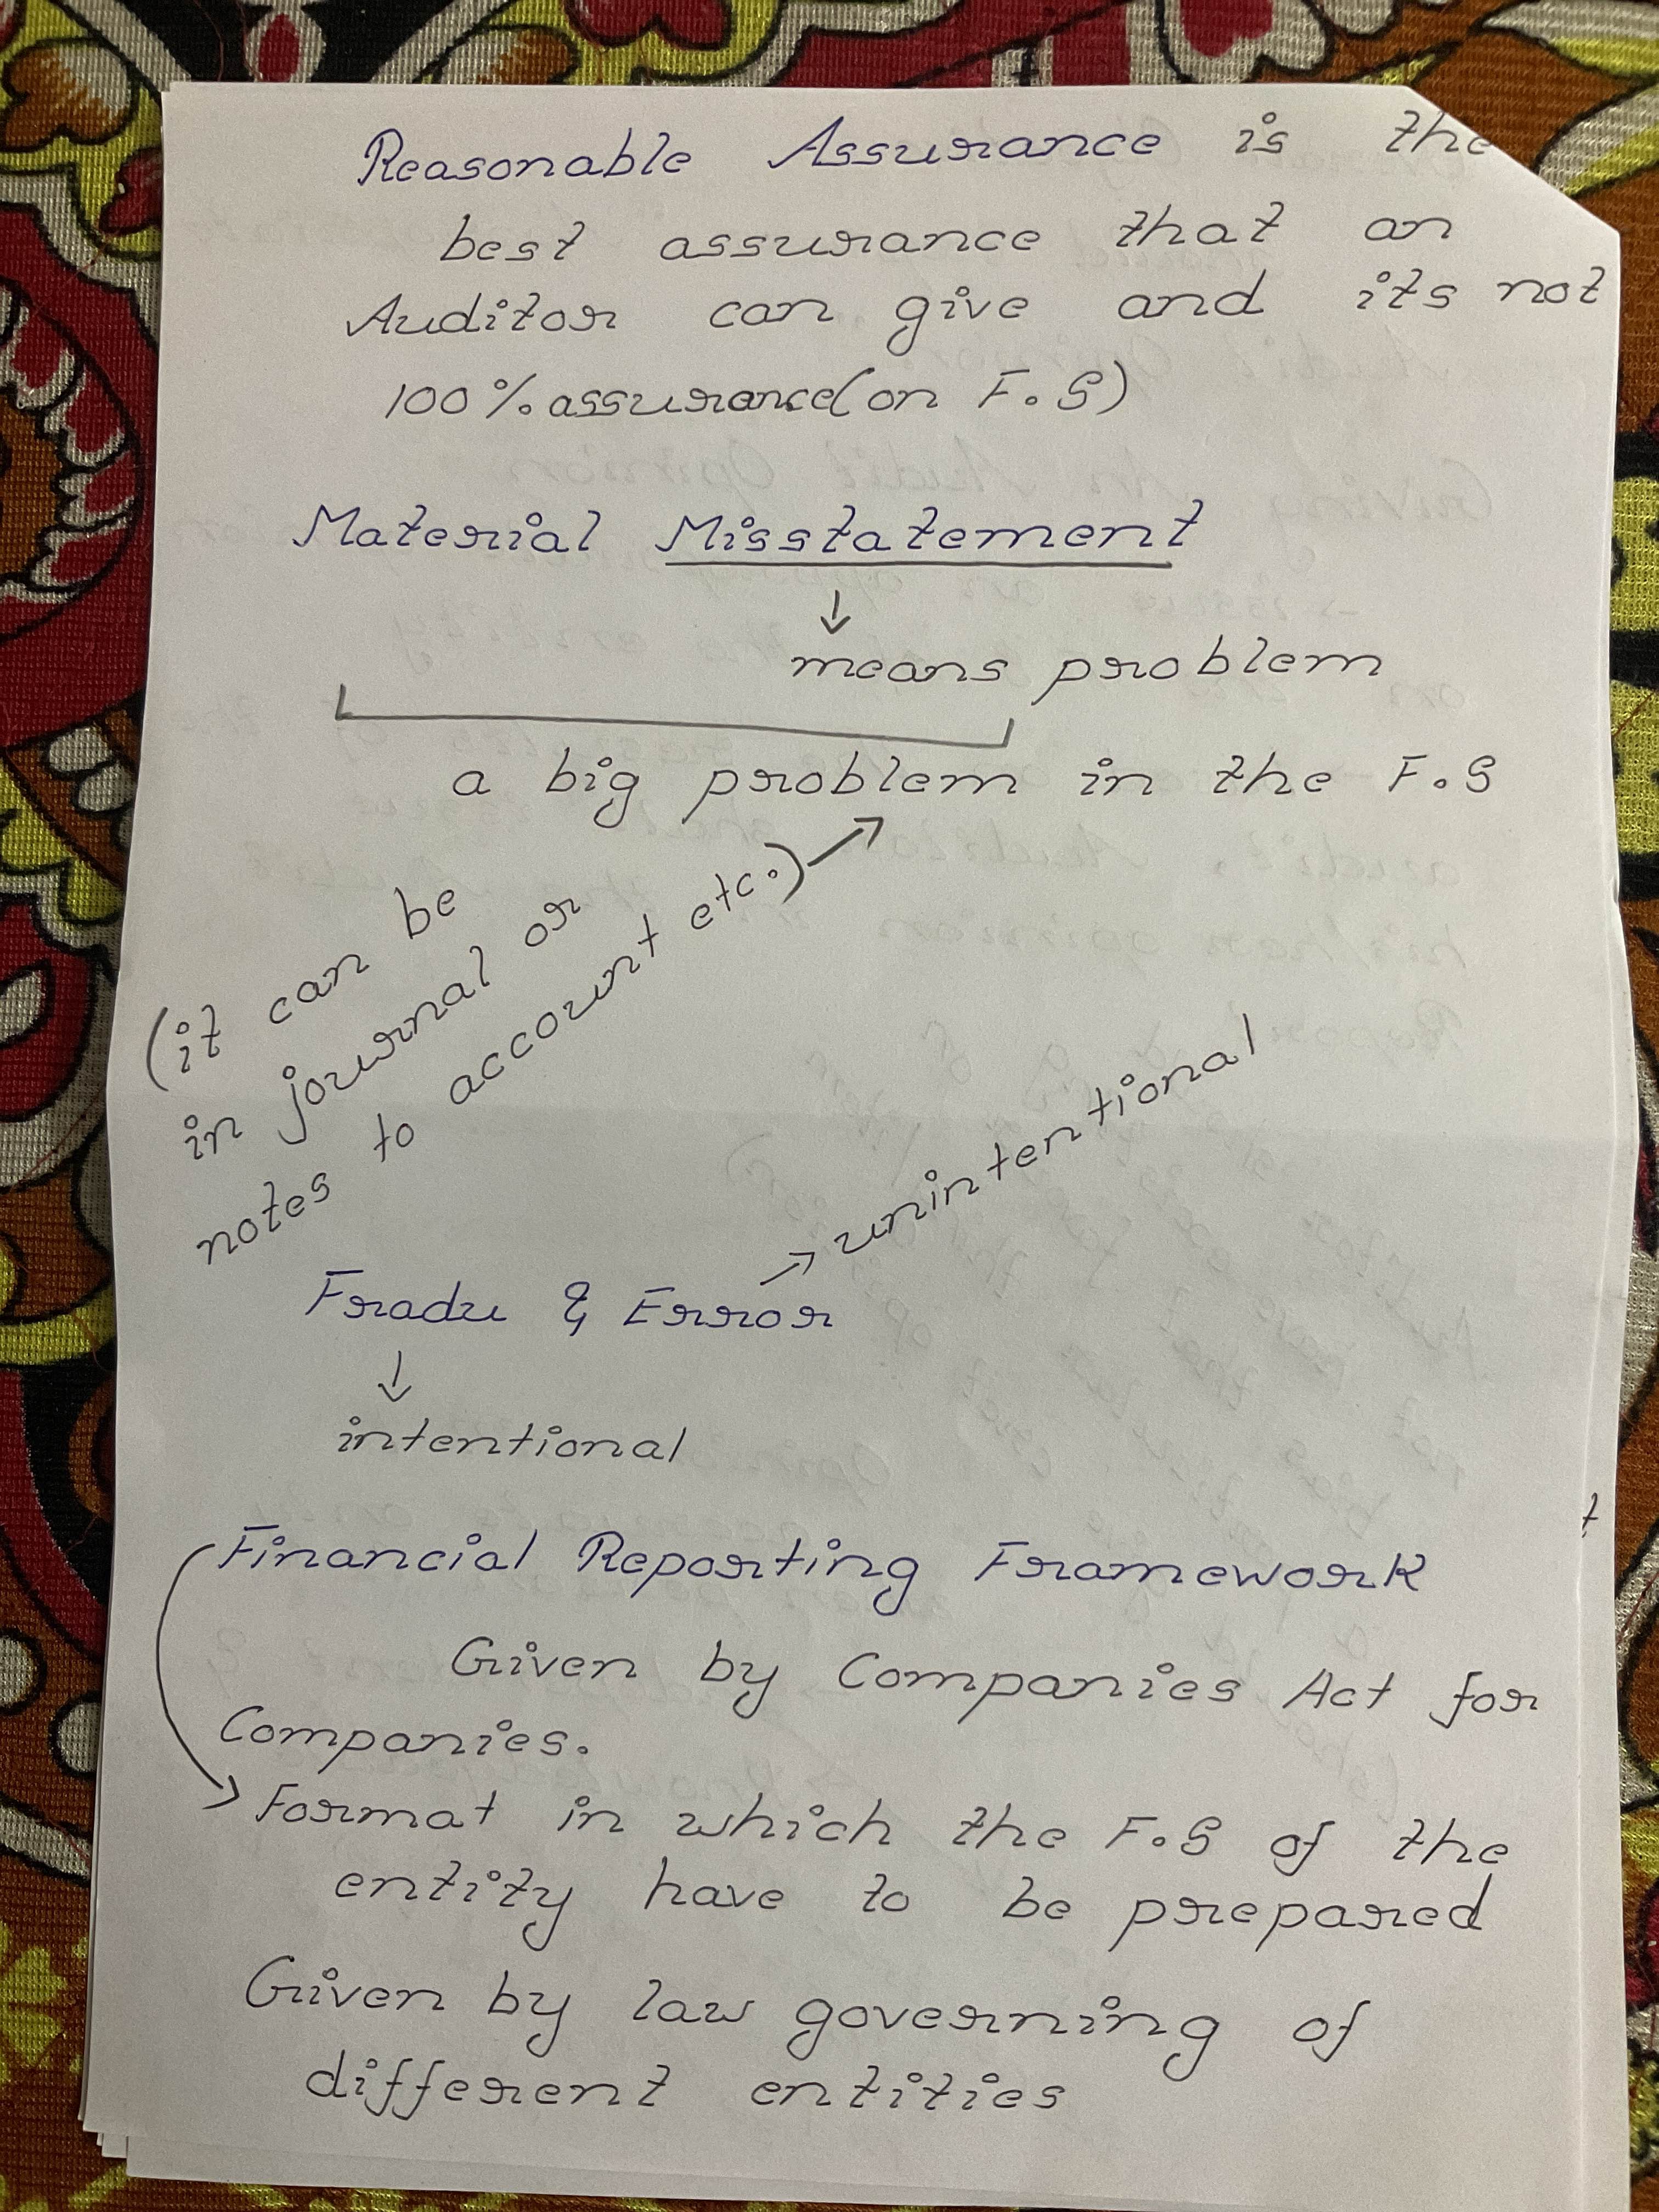 Reasonable Assurance is the
best assurance that an
Auditor can give and its not
100% assurance (on F.S)
Material Misstatement
↓
means problem
a big problem in the F.S
(it can be
in journal or
notes to account etc.) →
Fradu & Error → unintentional
↓
intentional
Financial Reporting Framework
Given by Companies Act for
Companies.
→ Format in which the F.S of the
entity have to be prepared
Given by law governing of
different entities